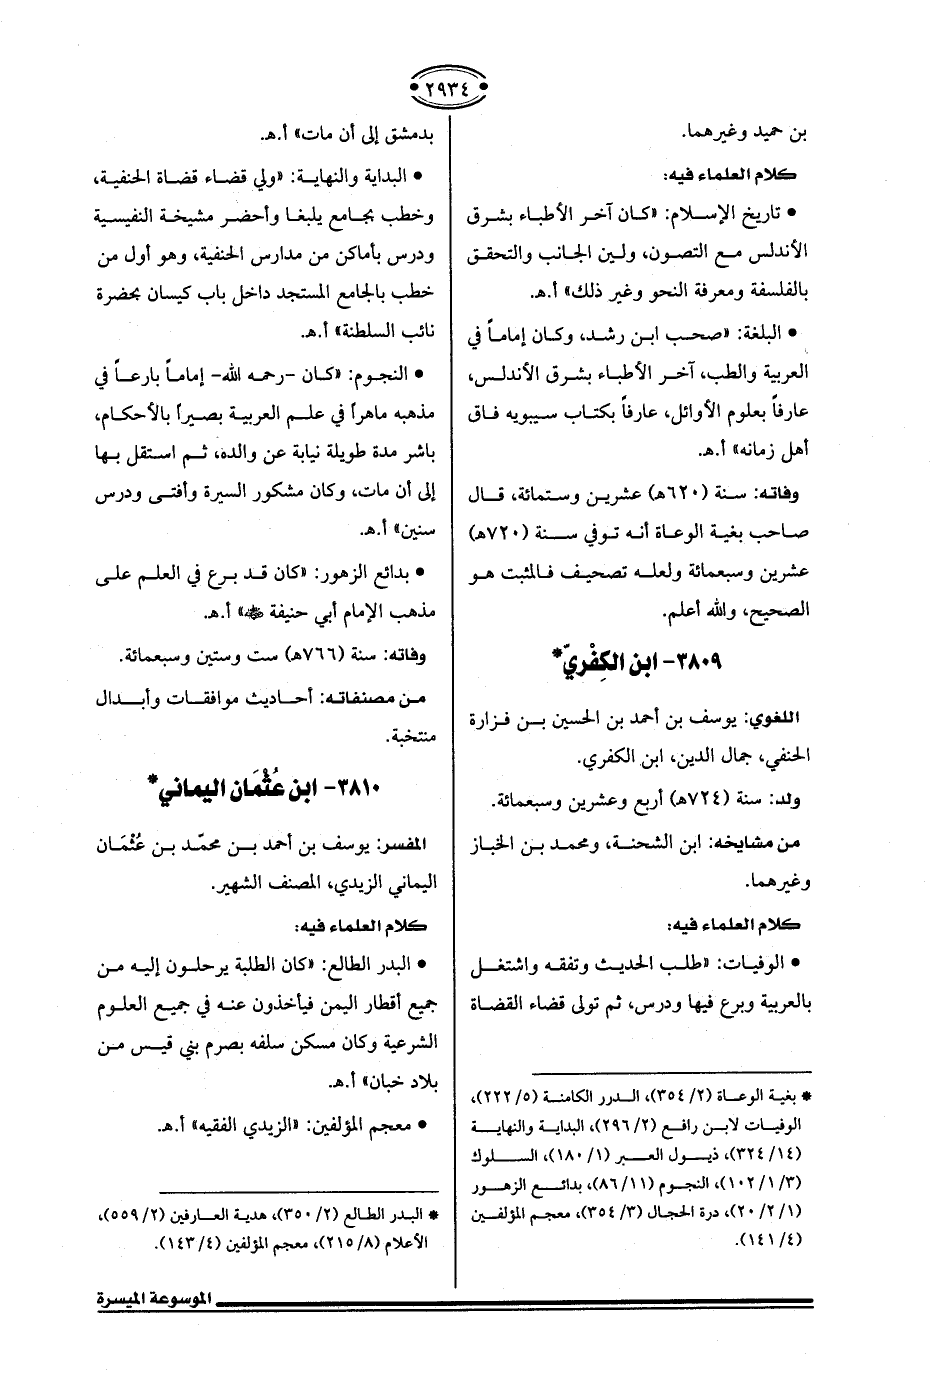 ٢٩٣٤
بن حميد وغيرهما.
كلام العلماء فيه:
• تاريخ الإسلام: «كان آخر الأطباء بشرق
الأندلس مع التصون، ولين الجانب والتحقق
بالفلسفة ومعرفة النحو وغير ذلك» أ.هـ.
• البلغة: «صحب ابن رشد، وكان إماماً في
العربية والطب، آخر الأطباء بشرق الأندلس،
عارفاً بعلوم الأوائل، عارفاً بكتاب سيبويه فاق
أهل زمانه» أ.هـ.
وفاته: سنة (٦٢٠هـ) عشرين وستمائة، قال
صاحب بغية الوعاة أنه توفي سنة (٧٢٠هـ)
عشرين وسبعمائة ولعله تصحيف فالمثبت هو
الصحيح، والله أعلم.
٣٨٠٩- ابن الكِفْريّ*
اللغوي: يوسف بن أحمد بن الحسين بن فزارة
الحنفي، جمال الدين، ابن الكفري.
ولد: سنة (٧٢٤هـ) أربع وعشرين وسبعمائة.
من مشايخه: ابن الشحنة، ومحمد بن الخباز
وغيرهما.
كلام العلماء فيه:
• الوفيات: «طلب الحديث وتفقه واشتغل
بالعربية وبرع فيها ودرس، ثم تولى قضاء القضاة
* بغية الوعاة (٢/ ٣٥٤)، الدرر الكامنة (٥/ ٢٢٢)،
الوفيات لابن رافع (٢/ ٢٩٦)، البداية والنهاية
(١٤/ ٣٢٤)، ذيول العبر (١/ ١٨٠)، السلوك
(٣/ ١/ ١٠٢)، النجوم (١١/ ٨٦)، بدائع الزهور
(١/ ٢/ ٢٠)، درة الحجال (٣/ ٣٥٤)، معجم المؤلفين
(٤/ ١٤١).
بدمشق إلى أن مات» أ.هـ.
• البداية والنهاية: «ولي قضاء قضاة الحنفية،
وخطب بجامع يلبغا وأحضر مشيخة النفيسية
ودرس بأماكن من مدارس الحنفية، وهو أول من
خطب بالجامع المستجد داخل باب كيسان بحضرة
نائب السلطنة» أ.هـ.
• النجوم: «كان -رحمه الله- إماماً بارعاً في
مذهبه ماهراً في علم العربية بصيراً بالأحكام،
باشر مدة طويلة نيابة عن والده، ثم استقل بها
إلى أن مات، وكان مشكور السيرة وأفتى ودرس
سنين» أ.هـ.
• بدائع الزهور: «كان قد برع في العلم على
مذهب الإمام أبي حنيفة ﷺ» أ.هـ.
وفاته: سنة (٧٦٦هـ) ست وستين وسبعمائة.
من مصنفاته: أحاديث موافقات وأبدال
منتخبة.
٣٨١٠- ابن عُثْمَان اليماني*
المفسر: يوسف بن أحمد بن محمّد بن عُثْمَان
اليماني الزيدي، المصنف الشهير.
كلام العلماء فيه:
• البدر الطالع: «كان الطلبة يرحلون إليه من
جميع أقطار اليمن فيأخذون عنه في جميع العلوم
الشرعية وكان مسكن سلفه بصرم بني قيس من
بلاد خبان» أ.هـ.
• معجم المؤلفين: «الزيدي الفقيه» أ.هـ.
* البدر الطالع (٢/ ٣٥٠)، هدية العارفين (٢/ ٥٥٩)،
الأعلام (٨/ ٢١٥)، معجم المؤلفين (٤/ ١٤٣).
الموسوعة الميسرة